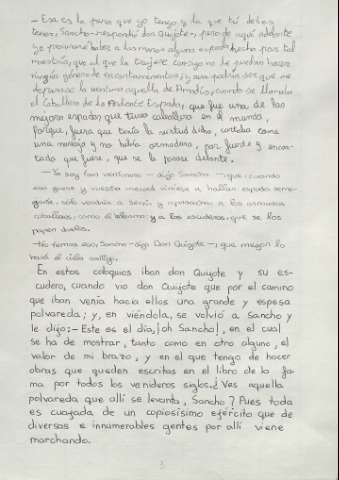 - Esa es la pena que yo tengo y la que tú debes
tener, Sancho - respondió don Quijote -; pero de aquí adelante
yo procuraré haber a las manos alguna espada hecha por tal
maestría, que al que la trujere consigo no le puedan hacer
ningún género de encantamentos; y aun podría ser que me
deparase la ventura aquella de Amadís, cuando se llamaba
el Caballero de la Ardiente Espada, que fue una de las
mejores espadas que tuvo caballero en el mundo,
porque, fuera que tenía la virtud dicha, cortaba como
una navaja y no había armadura, por fuerte y encan-
tada que fuera, que se le parase delante.
- Yo soy tan venturoso - dijo Sancho -, que cuando
eso fuese y vuestra merced viniese a hallar espada seme-
jante, sólo vendría a servir y aprovechar a los armados
caballeros, como el bálsamo; y a los escuderos, que se los
papen duelos.
- No temas eso, Sancho - dijo Don Quijote -, que mejor lo
hará el cielo contigo.
En estos coloquios iban don Quijote y su es-
cudero, cuando vio don Quijote que por el camino
que iban venía hacia ellos una grande y espesa
polvareda; y, en viéndola, se volvió a Sancho y
le dijo: - Este es el día, ¡oh Sancho!, en el cual
se ha de mostrar, tanto como en otro alguno, el
valor de mi brazo, y en el que tengo de hacer
obras que queden escritas en el libro de la fa-
ma por todos los venideros siglos. ¿Ves aquella
polvareda que allí se levanta, Sancho? Pues toda
es cuajada de un copiosísimo ejército que de
diversas e innumerables gentes por allí viene
marchando.
3